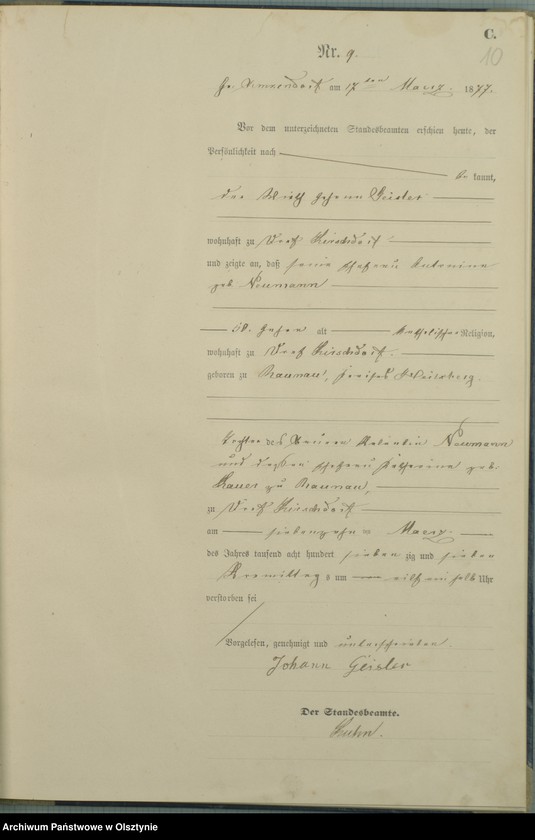 C.
10
Nr. 9.
am 17ten Maerz 1877.
Vor dem unterzeichneten Standesbeamten erschien heute, der
Persönlichkeit nach
be kannt,
der Wirth Johann Geisler
wohnhaft zu Dorf
und zeigte an, daß seine Ehefrau Antonina
geb Neumann
Jahre alt Katholischer Religion,
wohnhaft zu Dorf
geboren zu Raunau, Kreises Heilsberg
Tochter des Bauern Valentin Neumann
und dessen Ehefrau Catharina geb
zu Raunau,
zu Dorf
am siebenzehn Maerz
des Jahres tausend acht hundert sieben zig und sieben
Vormittag s um Uhr
verstorben sei
Vorgelesen, genehmigt und unterschrieben
Johann Geisler
Der Standesbeamte.
Archiwum Państwowe w Olsztynie